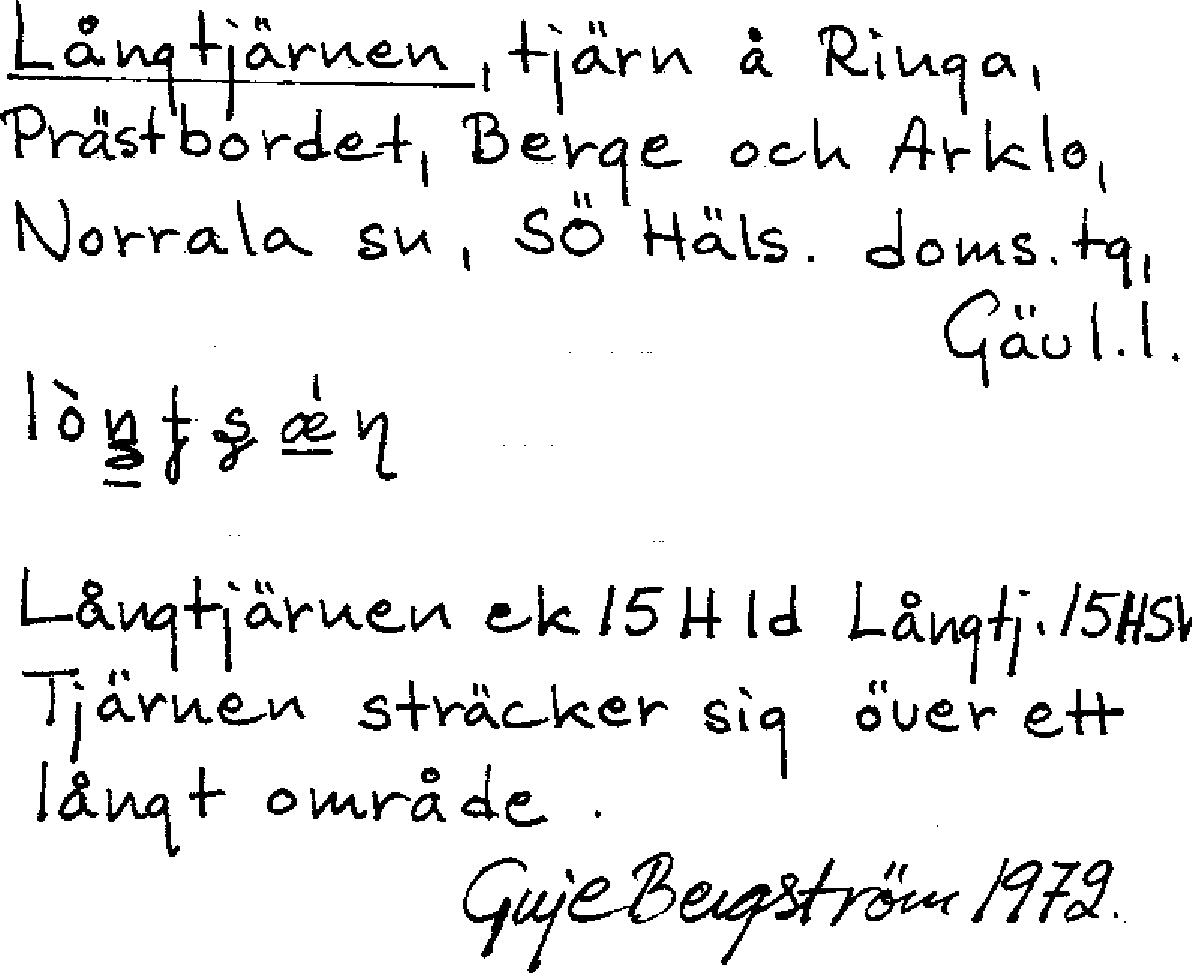 Långtjärnen, tjärn å Ringa,
Prästbordet, Berge och Arklo,
Norrala sn, SÖ Häls. doms. tg,
Gävl.l.
Långtjärnen ek 15 H 1d Långtj. 15HSV
Tjärnen sträcker sig över ett
långt område.
Guje Bergström 1972.